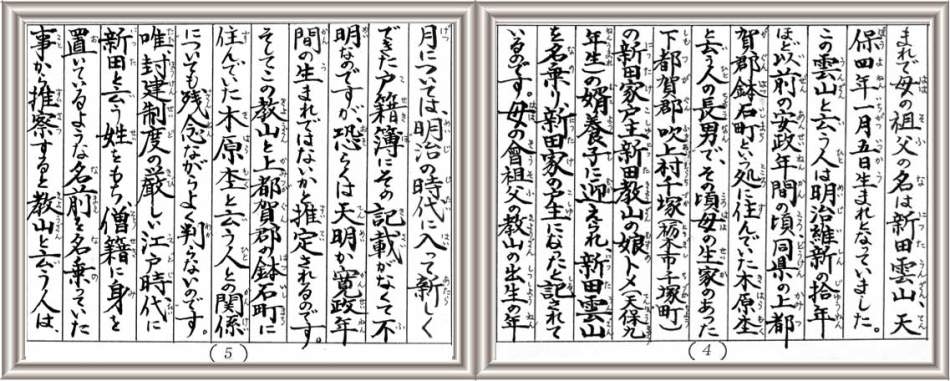 まれで母の祖父の名は新田雲山 天
保四年一月五日生まれとなっていました。
この雲山と云う人は明治維新の拾年
ほど以前の安政年間の頃同県の上都
賀郡鉢石町という処に住んでいた木原杢
と云う人の長男で、その頃母の生家のあった
下都賀郡吹上村千塚(栃木市千塚町)
の新田家戸主新田教山の娘トメ(天保九
年生)の婿養子に迎えられ、新田雲山
を名乗り、新田家の戸主になったと記されて
いるのです。母の曾祖父教山の出生の年
(4)
月については明治の時代に入って新しく
できた戸籍簿にその記載がなくて不
明なのですが、恐らくは天明か寛政年
間の生まれではないかと推定されるのです。
そしてこの教山と上都賀郡鉢石町に
住んでいた木原杢と云う人との関係
についても残念ながらよく判らないのです。
唯、封建制度の厳しい江戸時代に
新田と云う姓をもち、僧籍に身を
置いているような名前を名乗っていた
事から推察すると教山と云う人は、
(5)